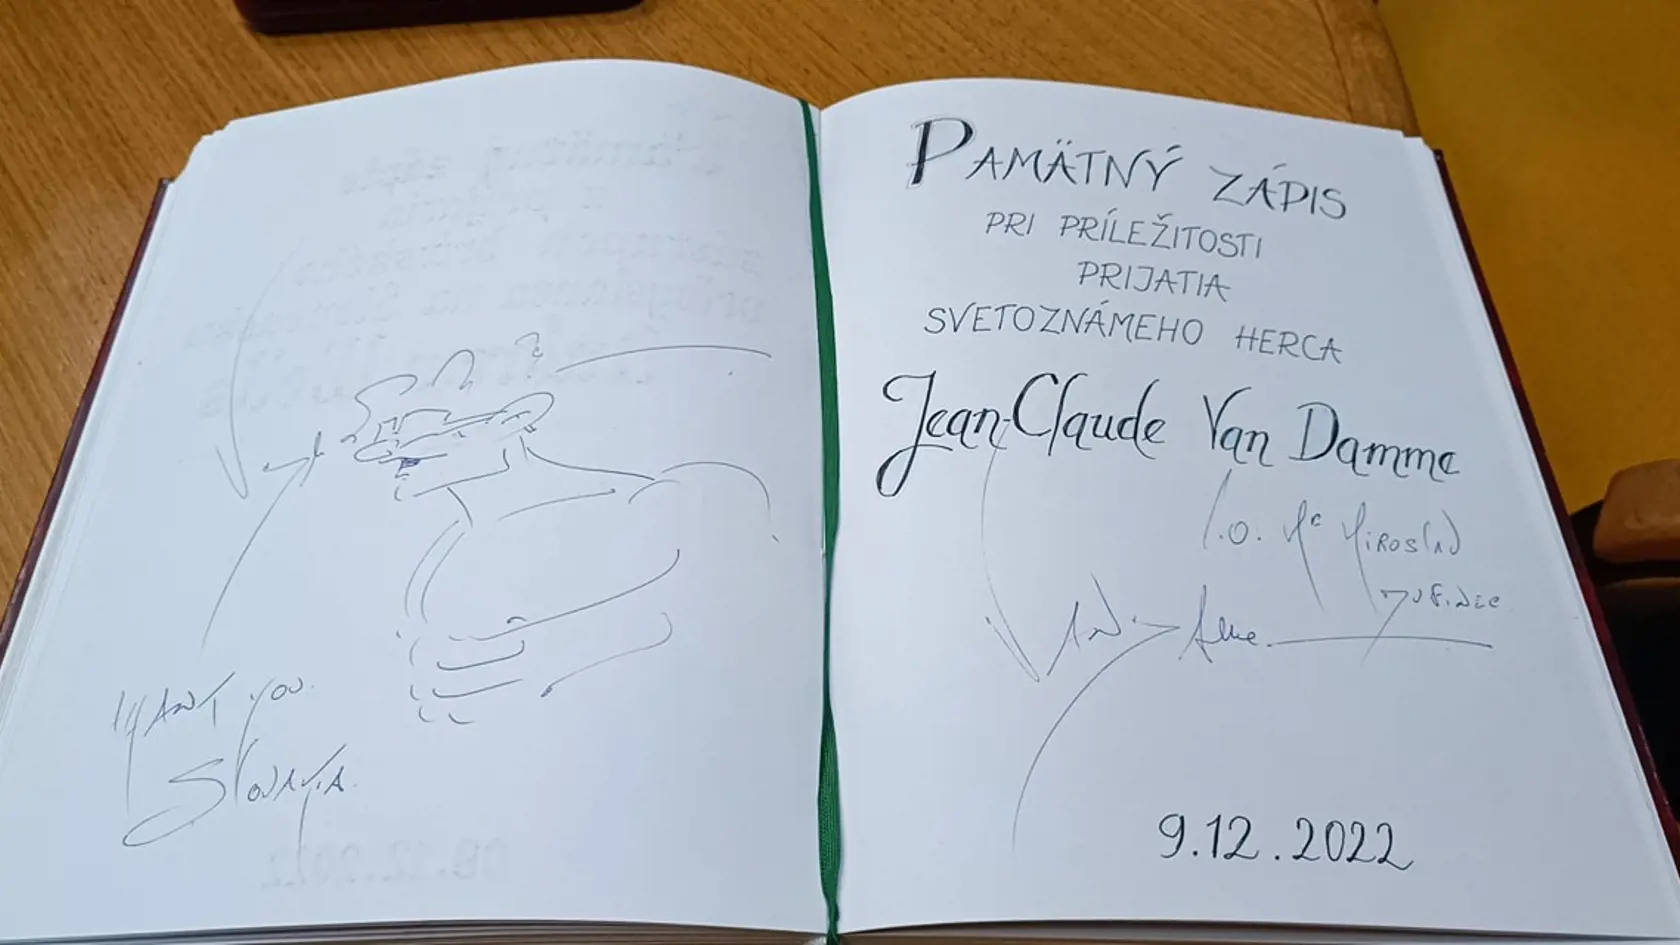 THANT YOU.
SLOVAKIA.
PAMÄTNÝ ZÁPIS
PRI PRÍLEŽITOSTI
PRIJATIA
SVETOZNÁMEHO HERCA
Jean-Claude Van Damme
MIROSLAV
9.12.2022